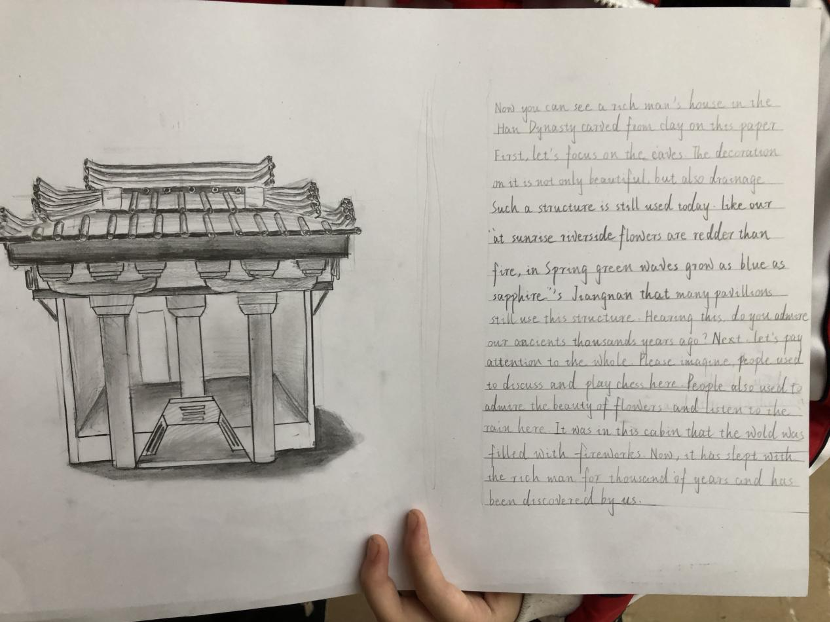 Now you can see a rich man's house in the
Han Dynasty carved from clay on this paper
First, let's focus on the eaves. The decoration
on it is not only beautiful, but also drainage
Such a structure is still used today. like our
"at sunrise riverside flowers are redder than
fire, in Spring green waves grow as blue as
sapphire"'s Jiangnan that many pavillions
still use this structure. Hearing this, do you admire
our ancients thousands years ago? Next, let's pay
attention to the whole. Please imagine, people used
to discuss and play chess here. People also used to
admire the beauty of flowers and listen to the
rain here. It was in this cabin that the wold was
filled with fireworks. Now, it has slept with
the rich man for thousand of years and has
been discovered by us.